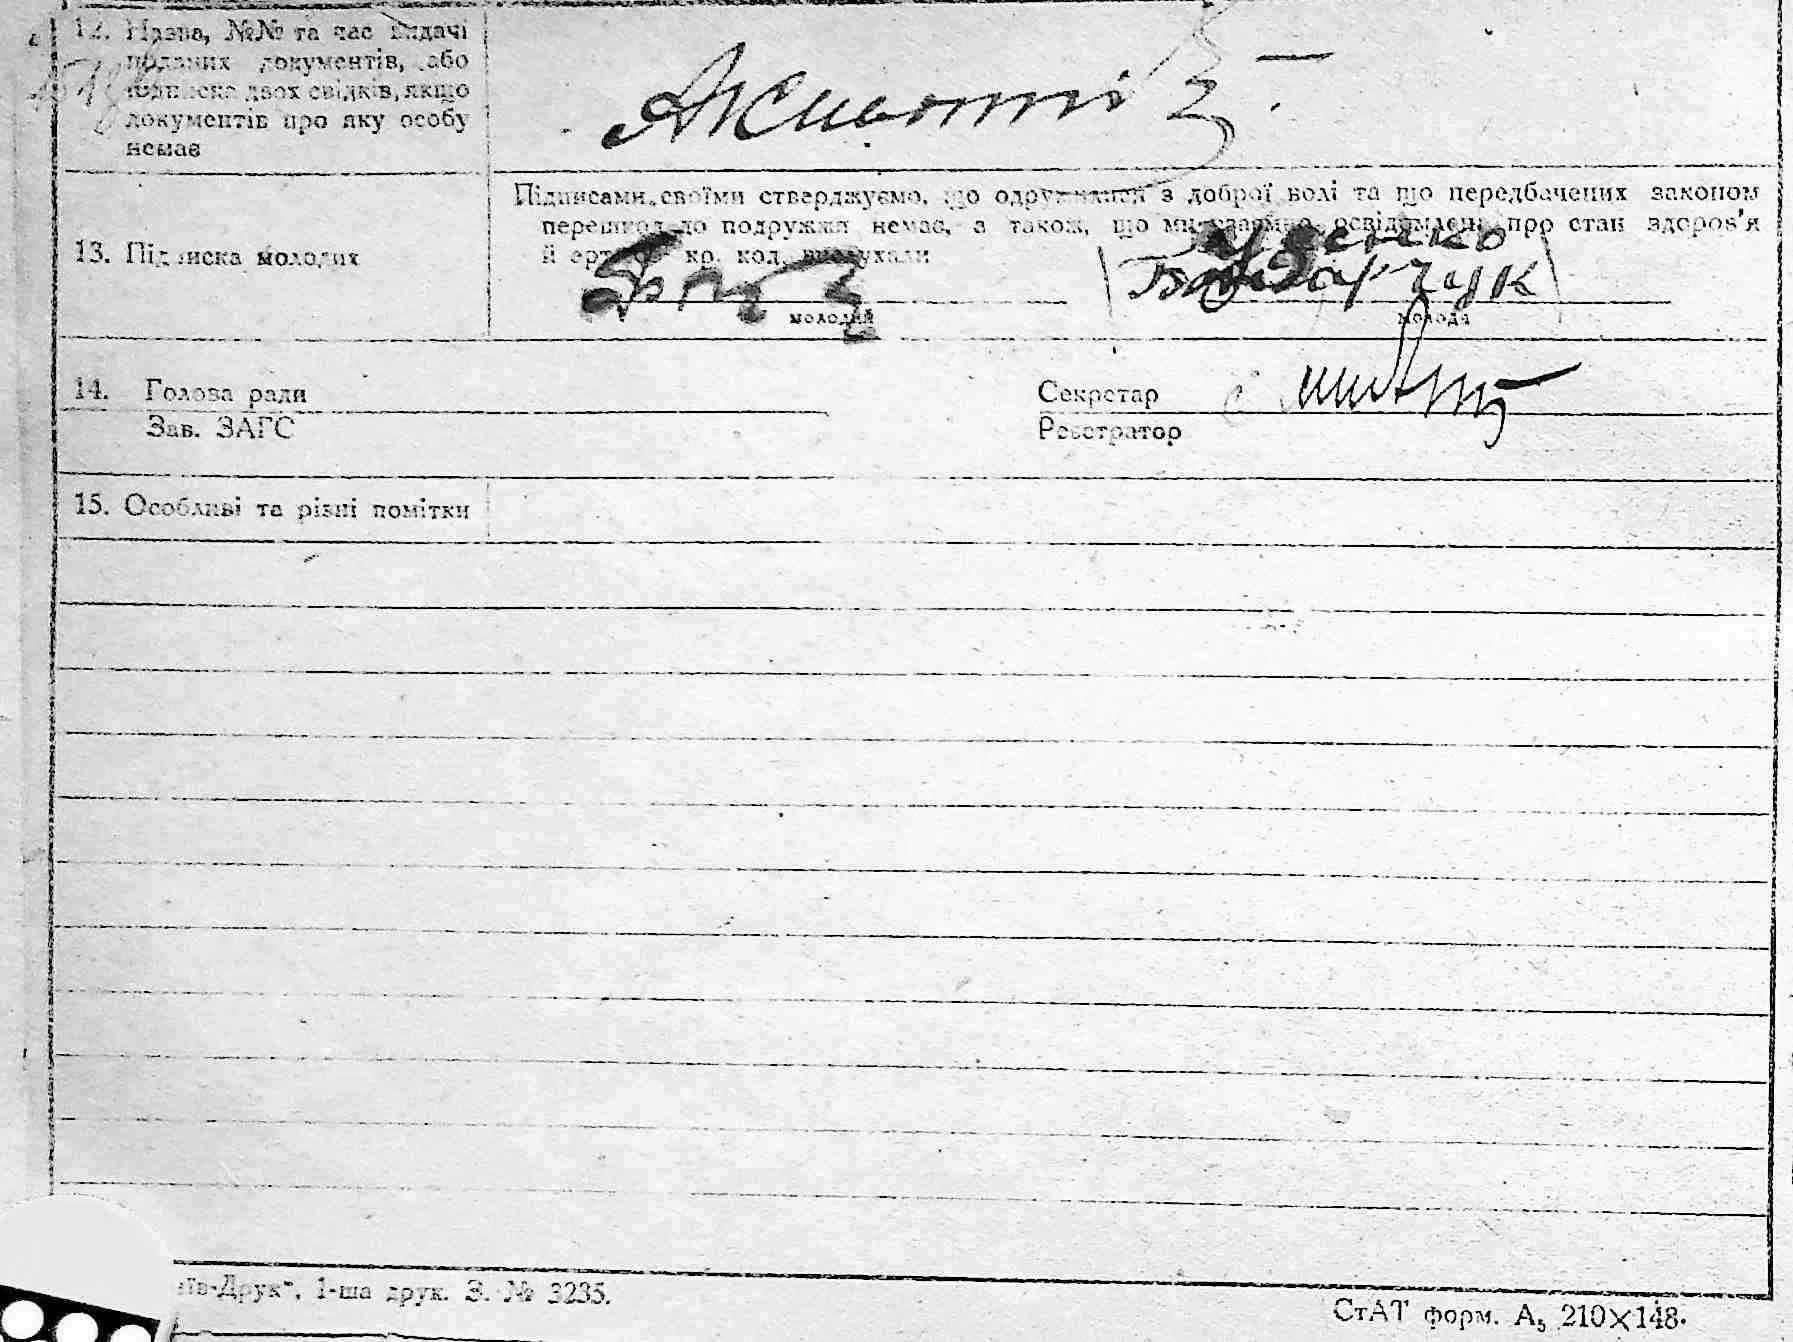 12. Назва, №№ та час видачі
поданих документів, або
підписка двох свідків, якщо
документів про яку особу
немає
Підписами своїми стверджуємо, що одружилися з доброї волі та що передбачених законом
перешкод до подружжя немає, а також, що ми взаємно освідомлені про стан здоров'я
й арт. кр. код. вислухали
13. Підписка молодих
Бондарчук
молодий
молода
14. Голова ради
Секретар
Зав. ЗАГС
Реєстратор
15. Особливі та різні помітки
їв-Друк", 1-ша друк. З. № 3235.
СтАТ форм. А₅ 210×148.